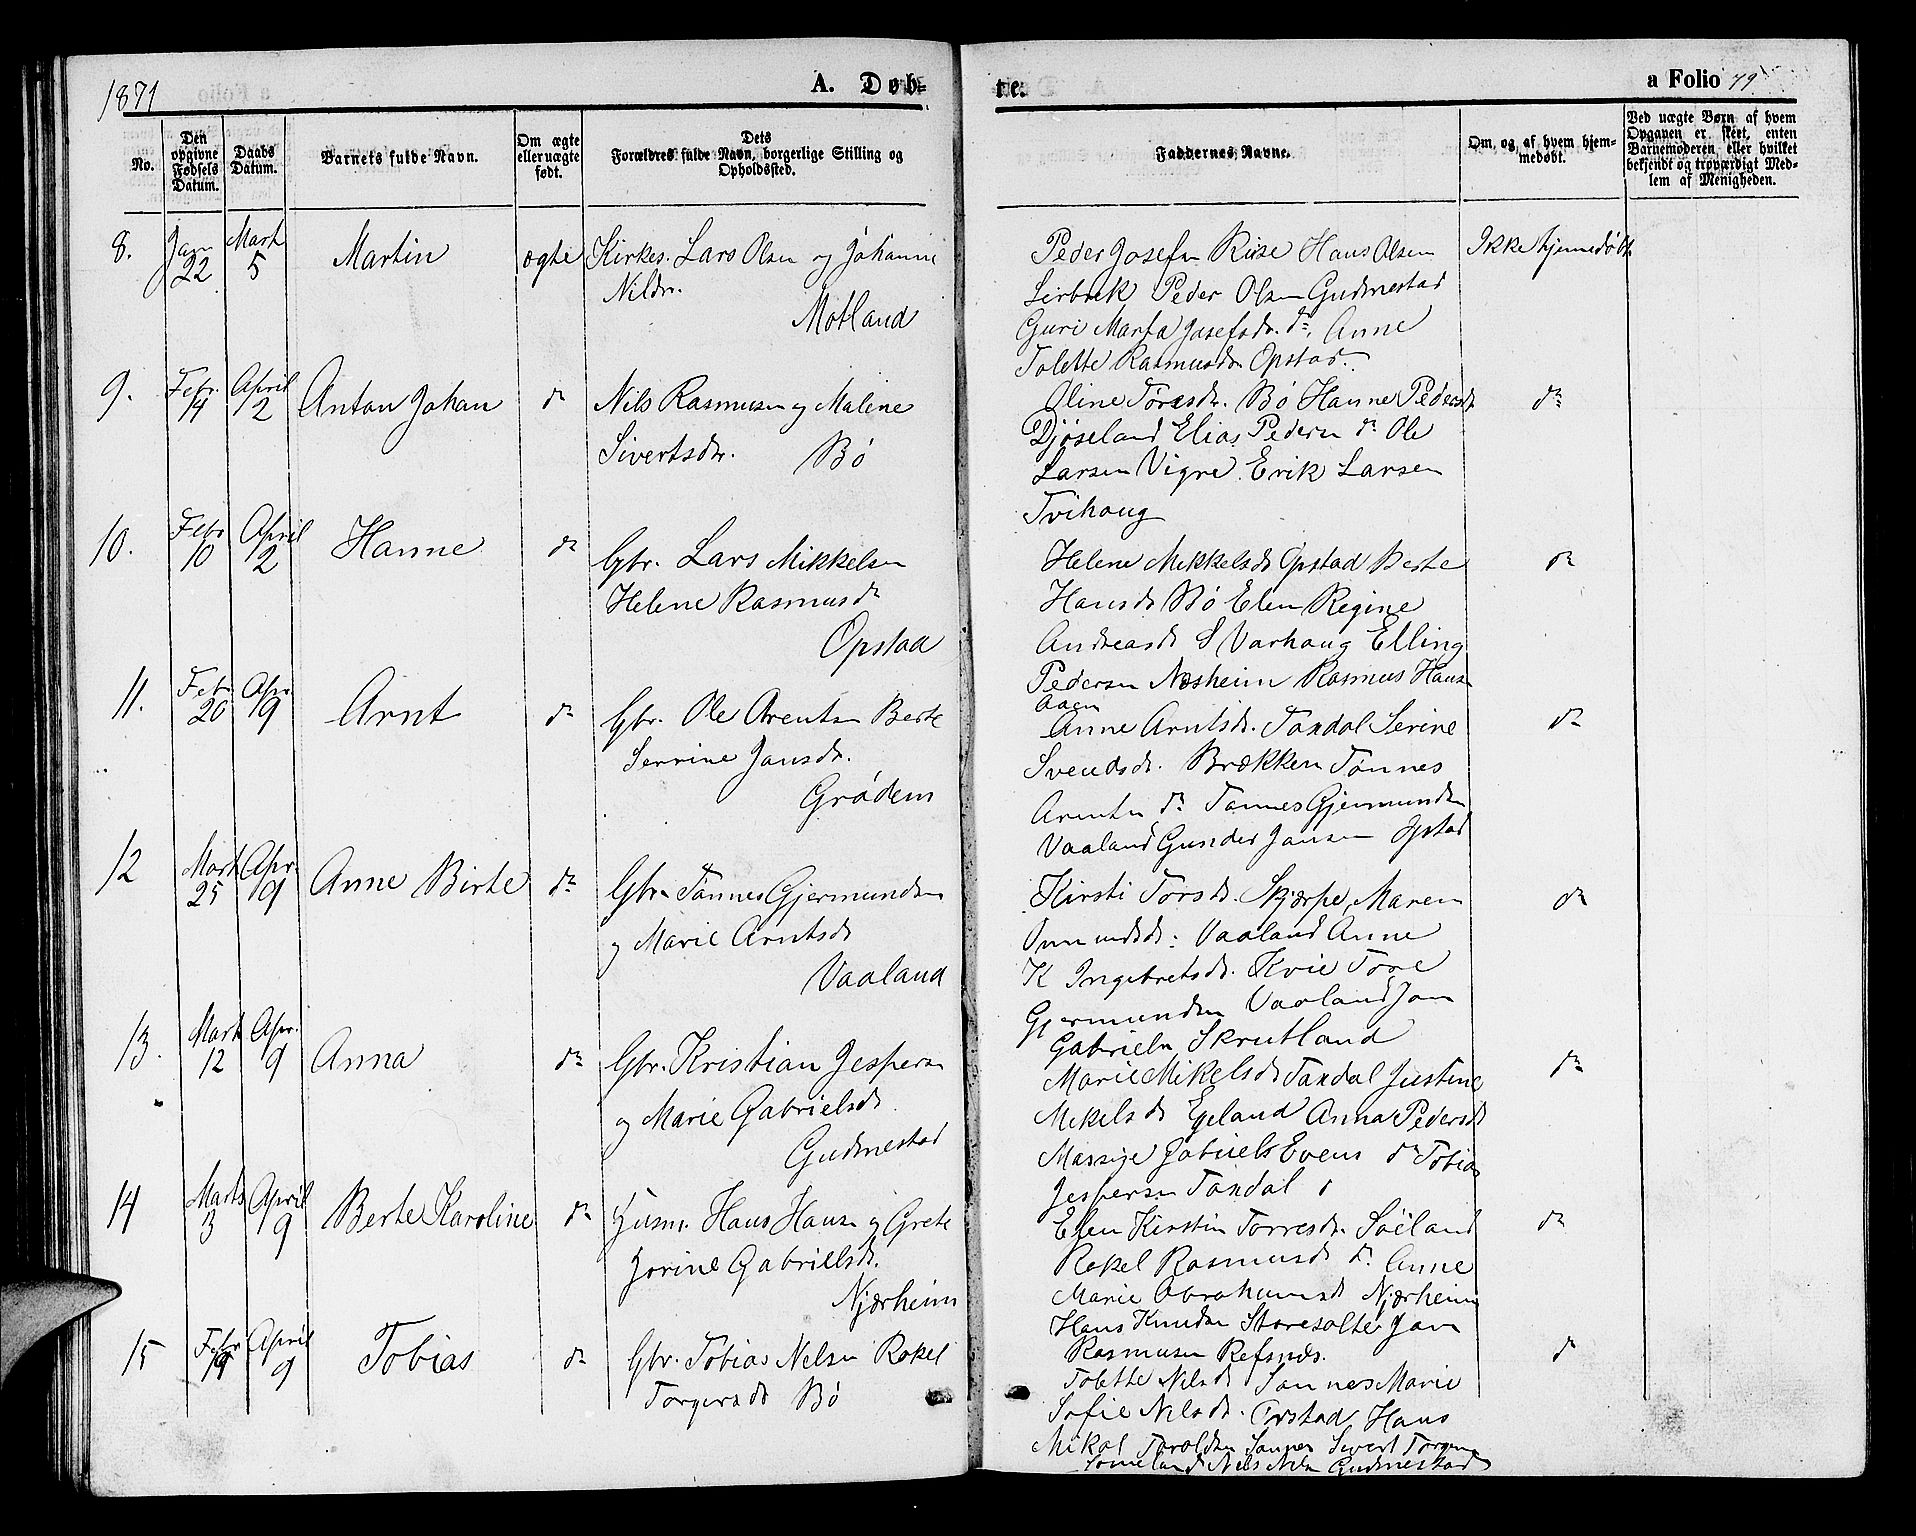 1871
A. Døb-
te.
a Folio 79
No.
Den opgivne Fødsels Datum.
Daabs Datum.
Barnets fulde Navn.
Om ægte eller uægte født.
Dets Forældres fulde Navn, borgerlige Stilling og Opholdssted.
Faddernes Navne.
Om, og af hvem hjemmedøbt.
Ved uægte Børn af hvem Opgaven er skeet, enten Barnemoderen, eller hvilket bekjendt og troværdigt Medlem af Menigheden.
8. Jan 22 Marts 5 Martin ægte Kirkes. Lars Olsen og Johanne
Nilsdr.
Motland
Peder Josefsen Riise Hans Olsen
Peder Olsen Gudmestad
Guri Marta Josefsdr. do, Anne
Tolette Rasmusdr Opstad
Ikke hjemmedøbt
9. Febr. 14 April 2 Anton Johan do Nils Rasmusen og Malene
Sivertsdr. Bø
Oline Toresdr. Bø Hanne Pedersdr
Djøseland Elias Pedersen do Ole
Larsen Vigre Erik Larsen
Tvihaug
do
10. Febr 10 April 2 Hanne do Gbr. Lars Mikkelsen
Helene Rasmusdr
Opstad
Helene Mikkelsdr Opstad Berte
Hansdr Bø Elen Regine
Andreasdr S Varhaug Elling
Pedersen Næsheim Rasmus Hansen
Aaen
do
11. Febr. 20 Apr. 9 Arnt do Gbr. Ole Arentsen Berte
Serrine Jansdr.
Grødem
Anne Arntsdr. Taxdal Serine
Svendsdr. Brækken Tønnes
Arentsen do Tønnes Gjermundsen
Vaaland Gunder Jansen Opstad
do
12 Marts 25 Apr. 9 Anne Birte do Gbr. Tønnes Gjermundsen
og Marie Arntsdr
Vaaland
Kirsti Torsdr. Skjærpe, Maren
Vaaland Anne
K Ingebretsdr. Kvie Tore
Gjermundsen Vaaland Jan
Gabrielsen Skrutland
do
13. Marts 12 Apr. 9 Anna do Gbr. Kristian Jespersen
og Marie Gabrielsdr
Gudmestad
Marie Mikelsdr Taxdal Justine
Mikelsdr Egeland Anna Pedersdr
Massige Gabriels Evens do Tobias
Jespersen Taxdal
do
14 Marts 3 April 9 Berte Karoline do Husm. Hans Hansen og Grete
Jorine Gabrielsdr.
Njærheim
Elen Kirstin Torresdr. Søiland
Rakel Rasmusdr do. Anne
Marie Abrahamsdr Njærheim
Hans Knudsen Jan
Rasmusen Refsnæs.
do
15 Febr 19 April 9 Tobias do Gbr. Tobias Nelsen Rakel
Torgersdr Bø
Tolette Nilsdr Marie
Sofie Nilsdr. Hans
Mikal Sivert
Nils Nilsen Gudmestad
do